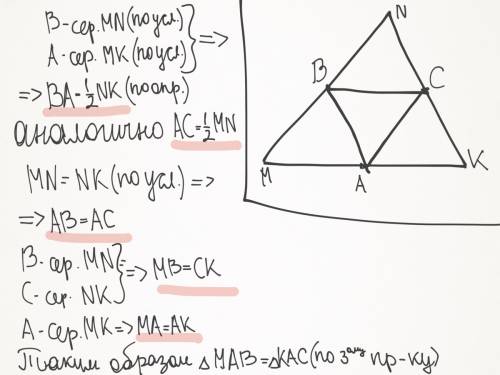 B-сер. MN(по усл.)
A-сер. MK(по усл.) } =>
=> BA=½NK(по опр.)
аналогично AC=½MN
MN=NK(по усл.)=>
=> AB=AC
B-сер. MN
C-сер. NK } => MB=CK
A-сер. MK=> MA=AK
Таким образом △MAB=△KAC(по 3ему пр-ку)
N
B
C
M
A
K